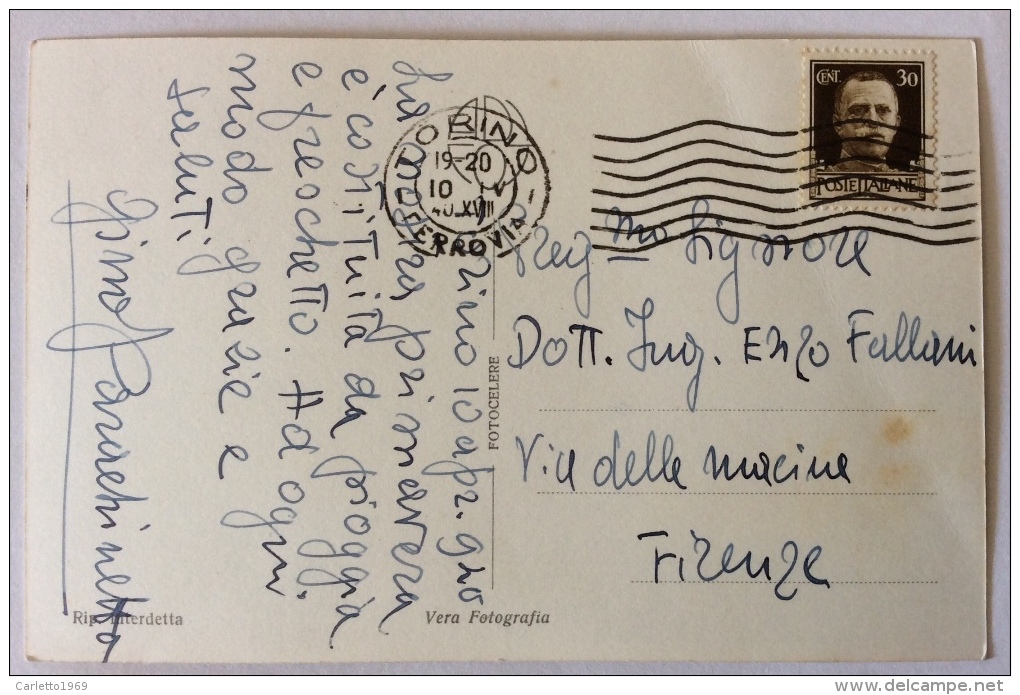 Torino 10 apr. 940
La magra primavera
è costituita da pioggia
e freschetto. Ad ogni
modo grazie e
saluti
Gino
TORINO
19-20
10 IV
40 XVIII
FERROVIA
CENT. 30
POSTE ITALIANE
Preg mo Signore
Dott. Ing. Enzo Fallani
Via delle macine
Firenze
FOTOCELERE
Rip. interdetta
Vera Fotografia
Carletto1969